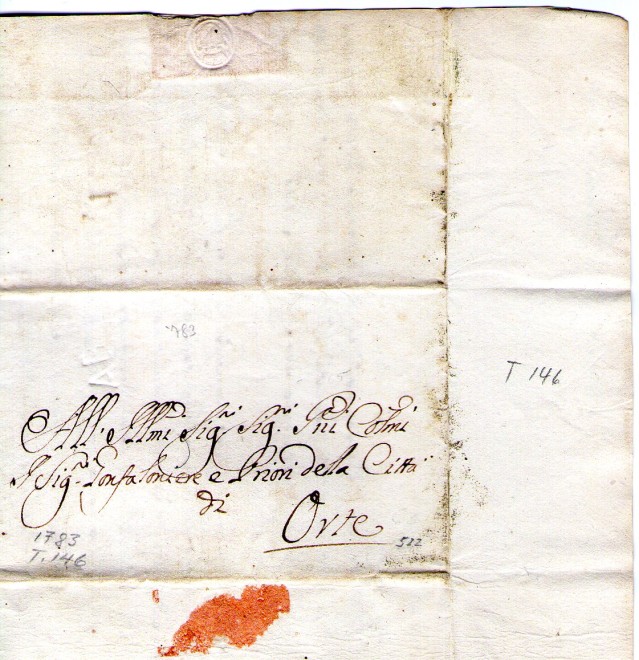 783
T 146
All. Illmi Sig.ri Sig.ri Pni Colmi
I Sig.ri Gonfaloniere e Priori della Città
di
Orte
1783
T. 146
522